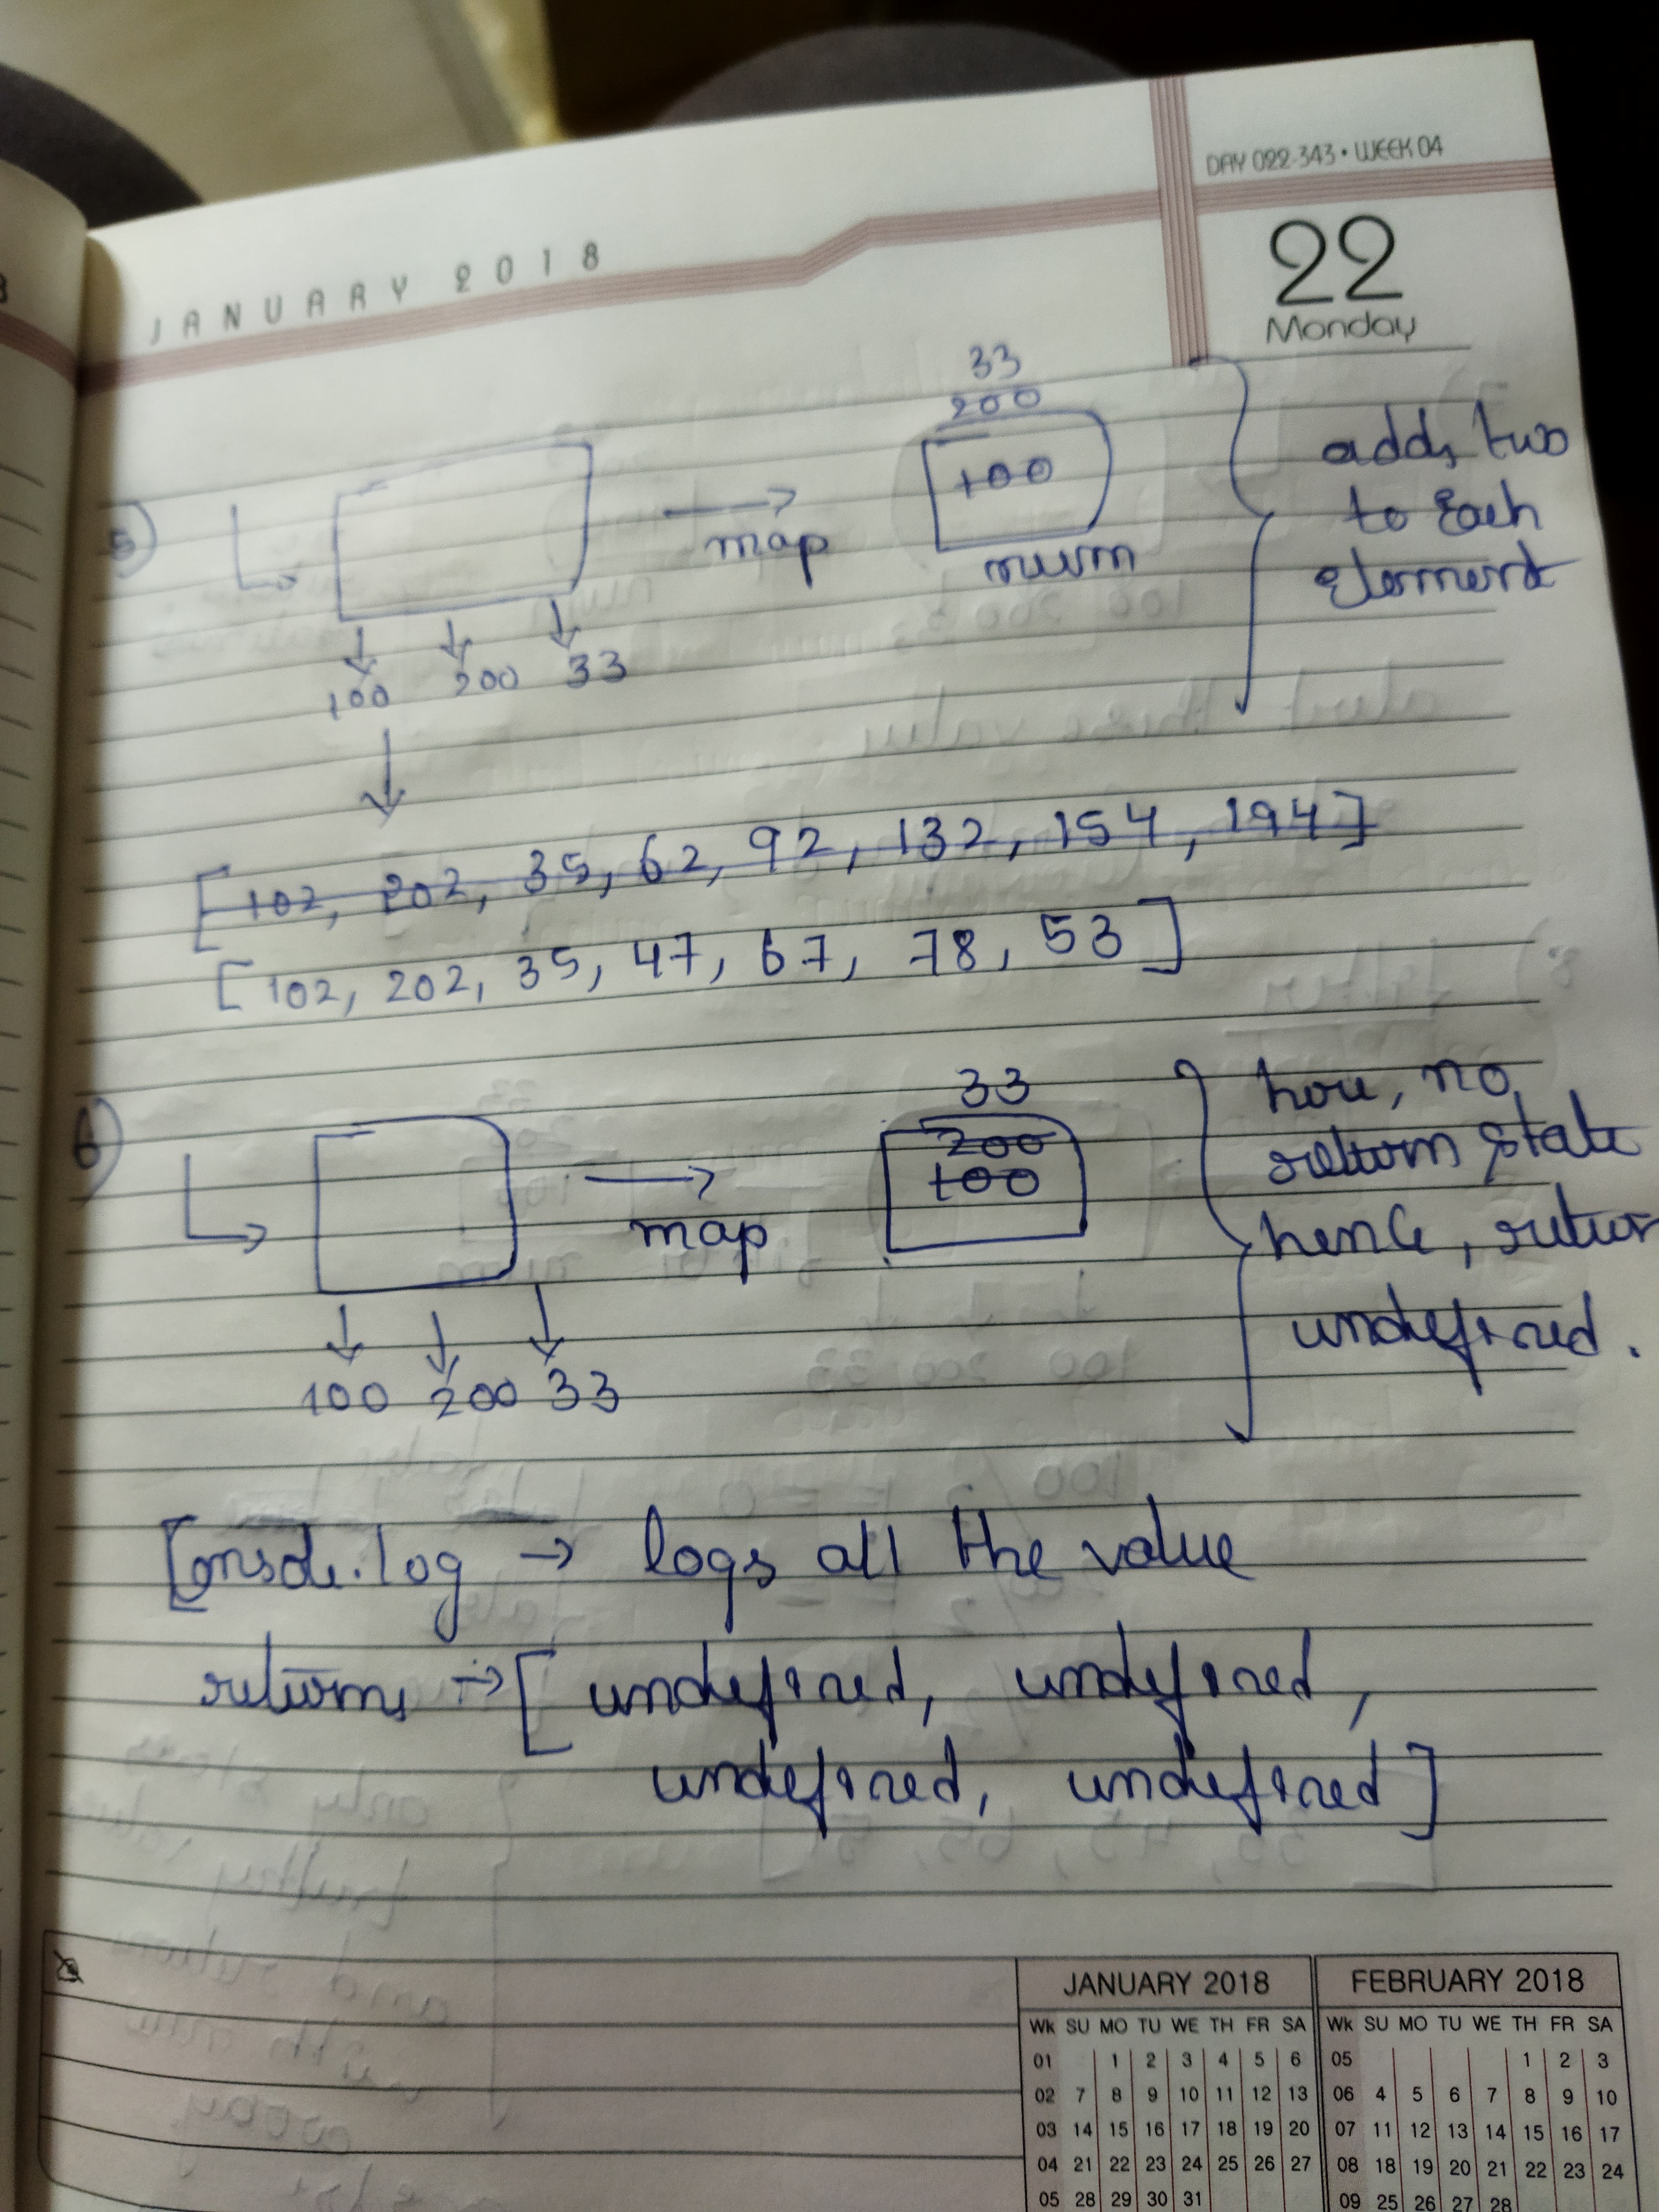 DAY 022-343 • WEEK 04
JANUARY 2018
22
Monday
5)
33
200
100
map
num
adds two
to Each
element
100 200 33
[102, 202, 35, 62, 92, 132, 154, 194]
[102, 202, 35, 47, 67, 78, 53]
6)
33
200
100
map
here, no
return state
hence, retur
undefined.
100 200 33
[Console.log → logs all the value
returns → [undefined, undefined,
undefined, undefined]
JANUARY 2018
Wk SU MO TU WE TH FR SA
01 1 2 3 4 5 6
02 7 8 9 10 11 12 13
03 14 15 16 17 18 19 20
04 21 22 23 24 25 26 27
05 28 29 30 31
FEBRUARY 2018
Wk SU MO TU WE TH FR SA
05 1 2 3
06 4 5 6 7 8 9 10
07 11 12 13 14 15 16 17
08 18 19 20 21 22 23 24
09 25 26 27 28